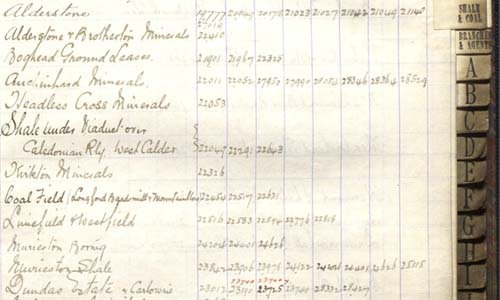 Alderstone 19777 20047 20178 21023 21027 21042 21049 21140
27019
Alderstone & Brotherton Minerals 22410
Boghead Ground Leases. 21901 21967 22325
Auchinhard Minerals. 22011 22052 27953 27990 28054 28346 28364 28529
Headless Cross Minerals 22053
Shale under Viaduct over
Caledonian Rly West Calder 22049 22291 22643
Kirkton Minerals 22326
Coal Field (Longford 22454 22517 22631
Limefield & Westfield 22516 22583 22594 23776 22818
Murieston Boring 24204 24401 24626
Murieston Shale 23842 23906 23975 24122 24204 24401 24626 25115
Dundas Estate & Carlowrie 23017 23190 23725 23740 28332 28427
SHALE
& COAL
BRANCHES
& AGENTS
A
B
C
D
E
F
G
H
I